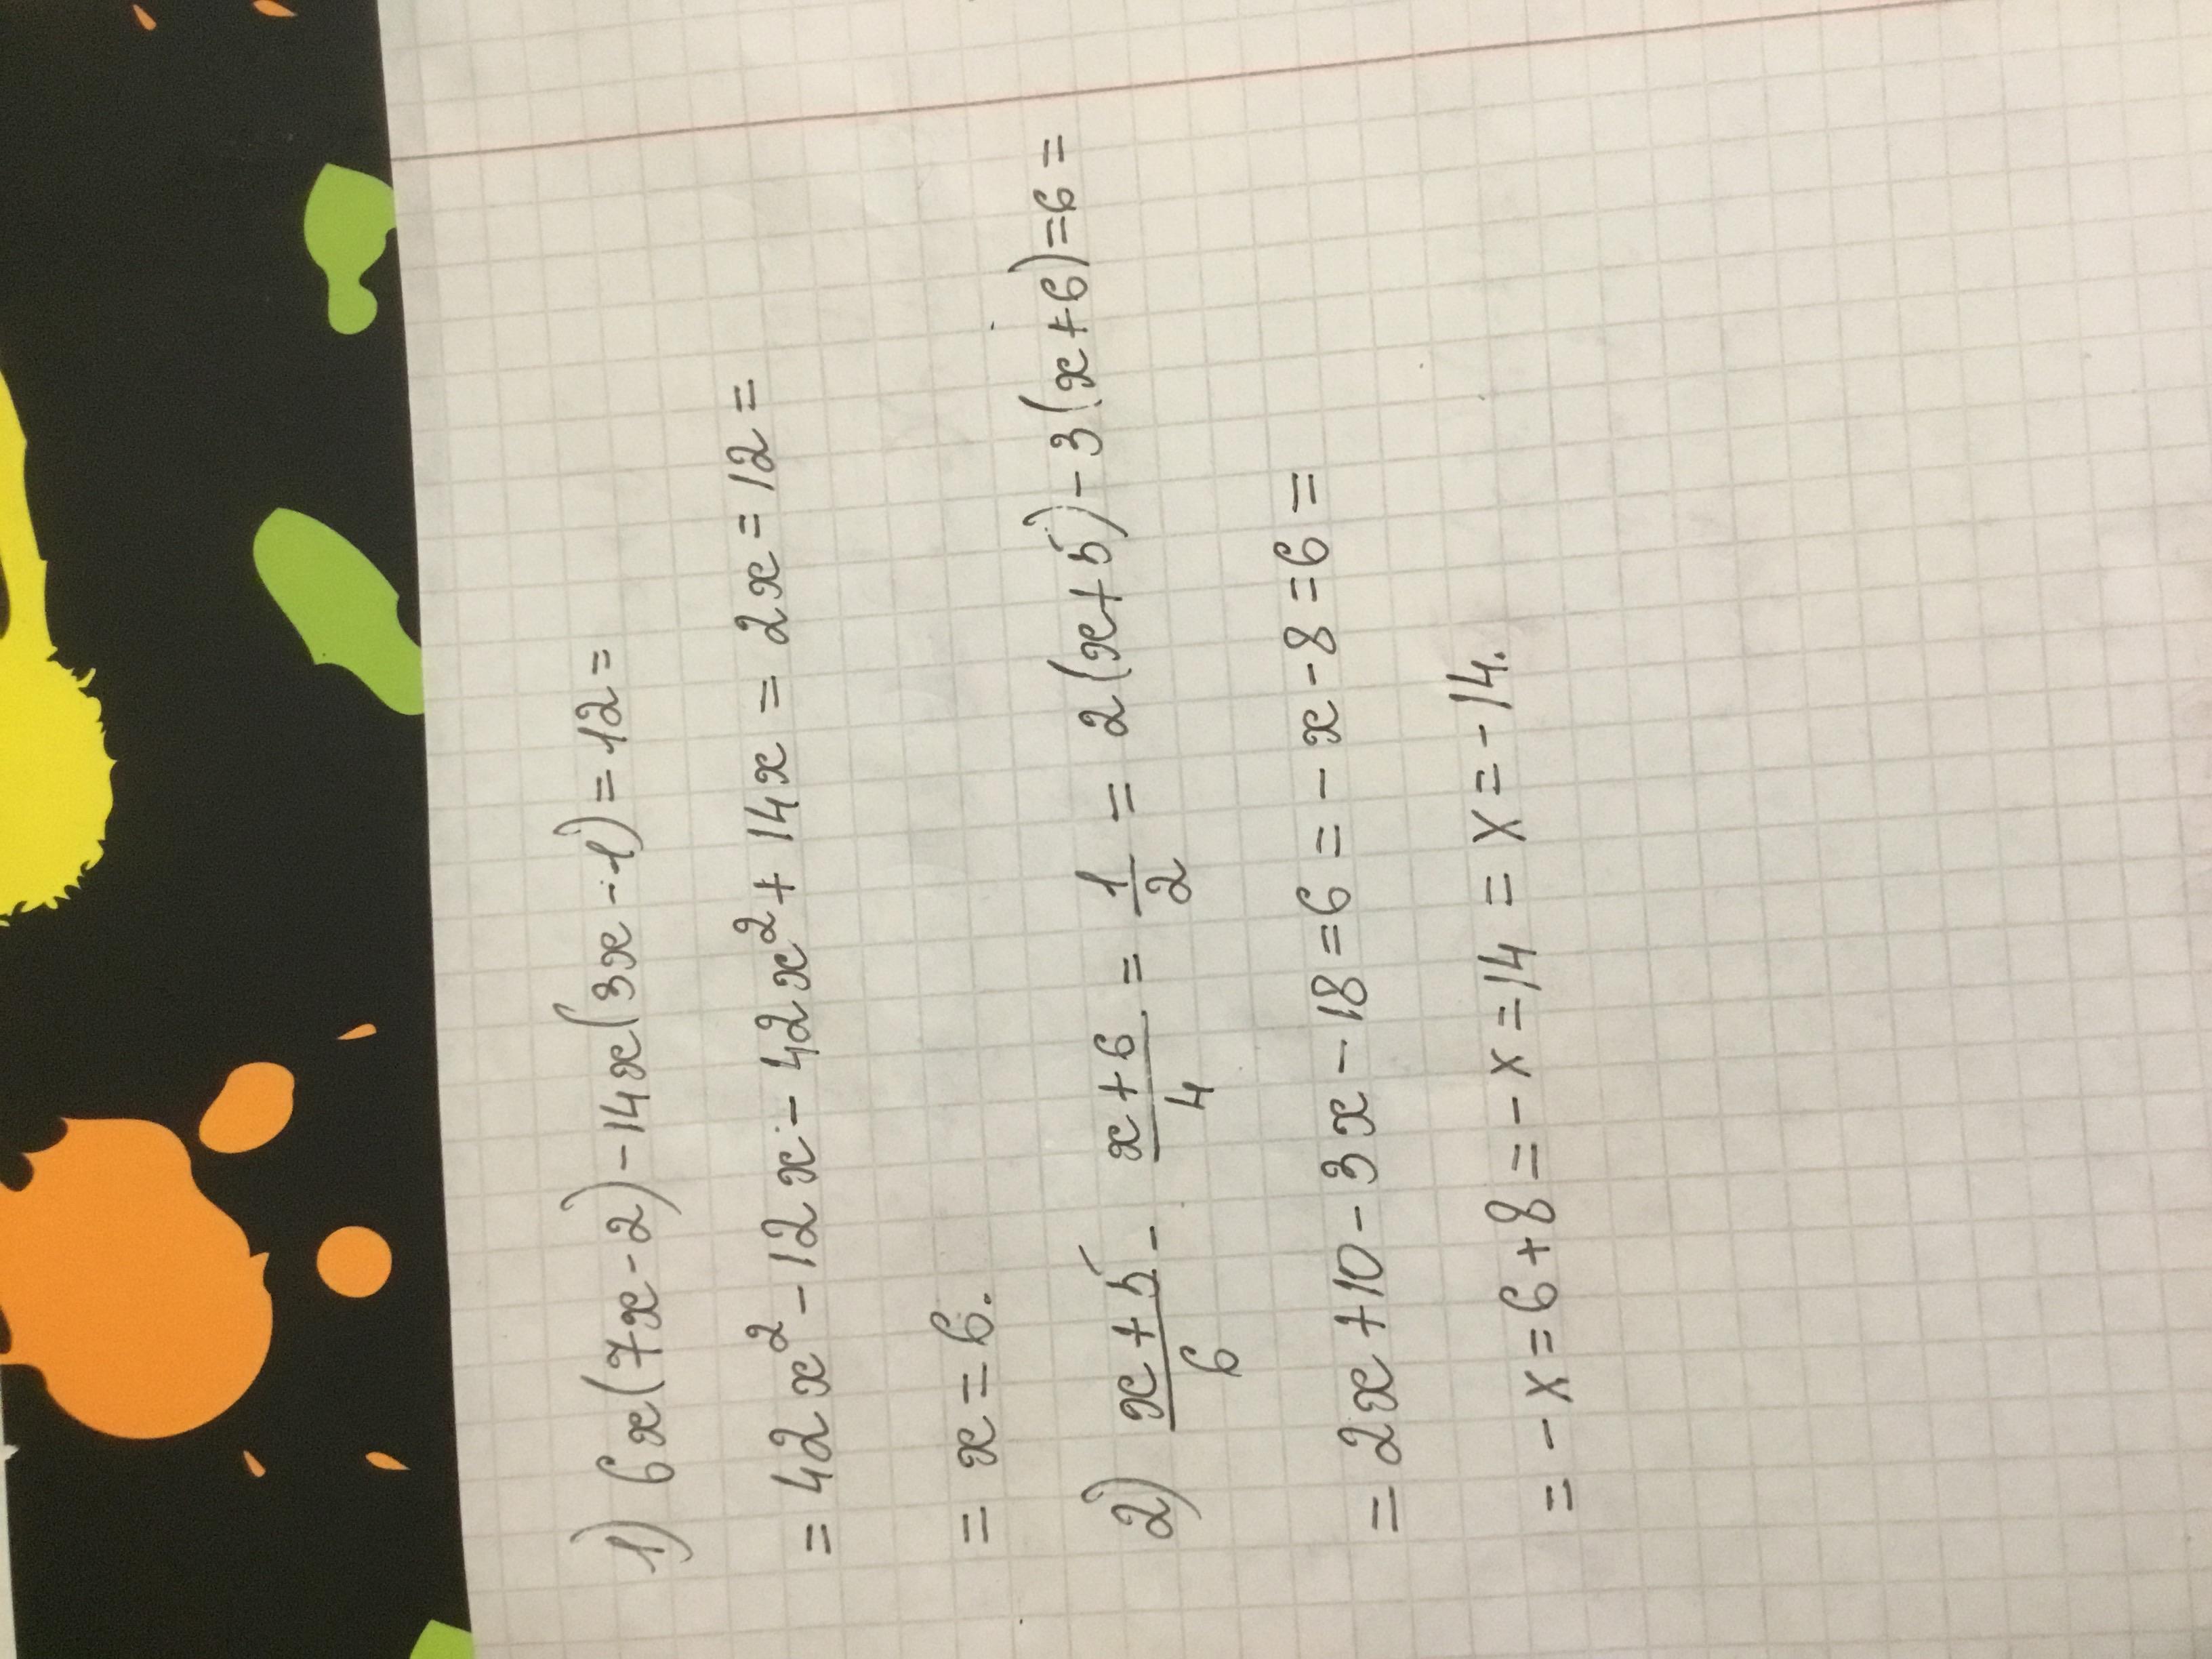 1) 6x(7x-2)-14x(3x-1)=12=
=42x²-12x-42x²+14x=2x=12=
=x=6.
2) \frac{x+5}{6} - \frac{x+6}{4} = \frac{1}{2} = 2(x+5)-3(x+6)=6=
=2x+10-3x-18=6=-x-8=6=
=-x=6+8=-x=14=x=-14.